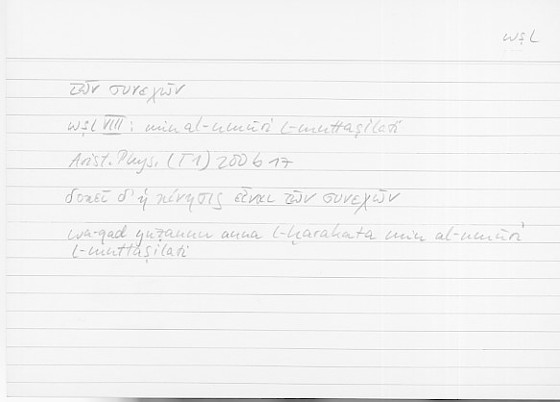 wṣL
τῶν συνεχῶν
wṣL VIII : min al-umūri l-muttaṣilati
Arist. Phys. (Γ 1) 200 b 17
δοκεῖ δ' ἡ κίνησις εἶναι τῶν συνεχῶν
wa-qad yuẓannu anna l-ḥarakata min al-umūri
l-muttaṣilati